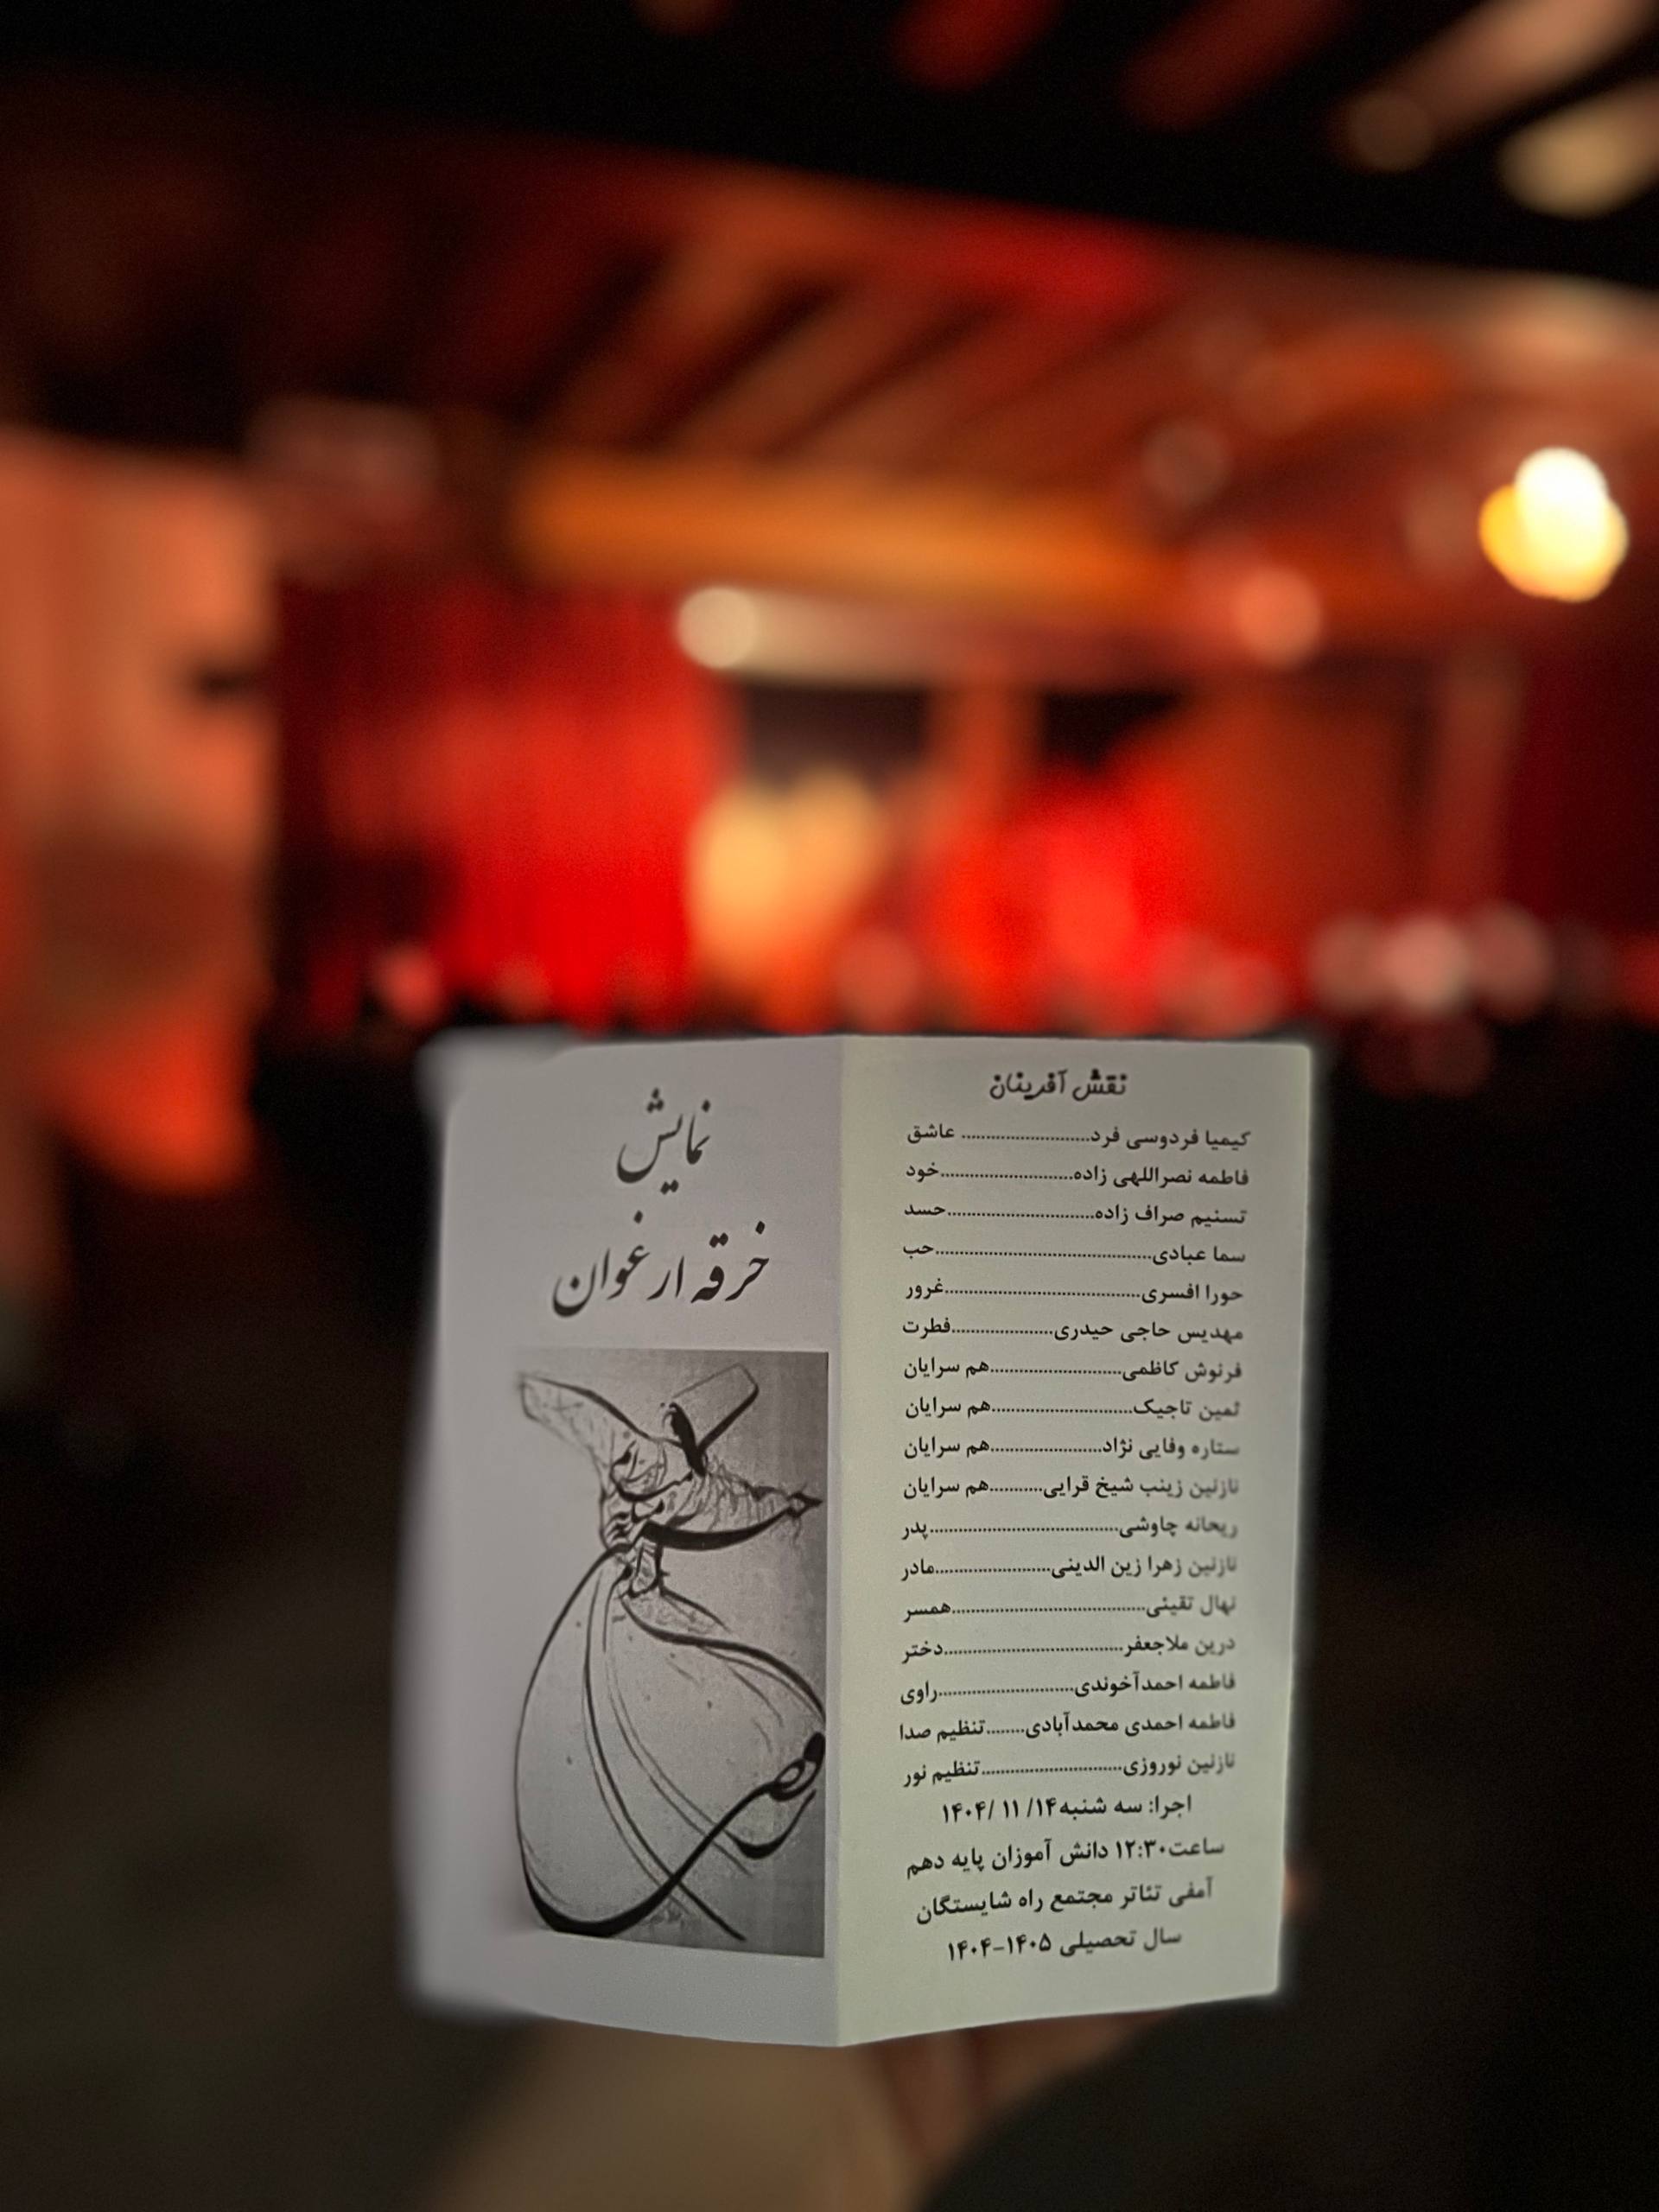 نمایش
خرقه ارغوان
نقش آفرینان
کیمیا فردوسی فرد.......................... عاشق
فاطمه نصراللهی زاده...........................خود
تسنیم صراف زاده..............................حسد
سما عبادی............................................حب
حورا افسری.......................................غرور
مهدیس حاجی حیدری.....................فطرت
فرنوش کاظمی...........................هم سرایان
ثمین تاجیک.............................هم سرایان
ستاره وفایی نژاد.......................هم سرایان
نازنین زینب شیخ قرایی...........هم سرایان
ریحانه چاوشی......................................پدر
نازنین زهرا زین الدینی........................مادر
نهال تقینی.......................................همسر
درین ملاجعفر....................................دختر
فاطمه احمدآخوندی...........................راوی
فاطمه احمدی محمدآبادی........تنظیم صدا
نازنین نوروزی............................تنظیم نور
اجرا: سه شنبه۱۴/ ۱۱ /۱۴۰۴
ساعت۱۲:۳۰ دانش آموزان پایه دهم
آمفی تئاتر مجتمع راه شایستگان
سال تحصیلی ۱۴۰۵-۱۴۰۴